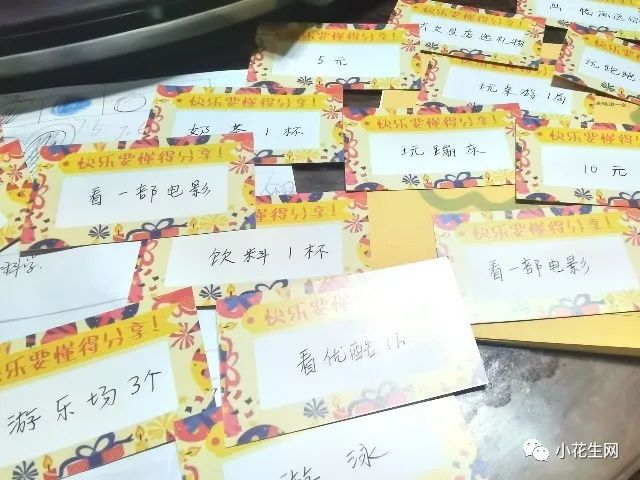 快乐要懂得分享！
5元
去文具店选礼物
快乐要懂得分享！
玩桌游1局
快乐要懂得分享！
奶茶1杯
快乐要懂得分享！
玩蹦床
快乐要懂得分享！
10元
快乐要懂得分享！
看一部电影
饮料1杯
快乐要懂得分享！
看一部电影
科学.
快乐要懂得分享！
看优酷1h
快乐要懂得分享！
游乐场3个
游泳
小花生网